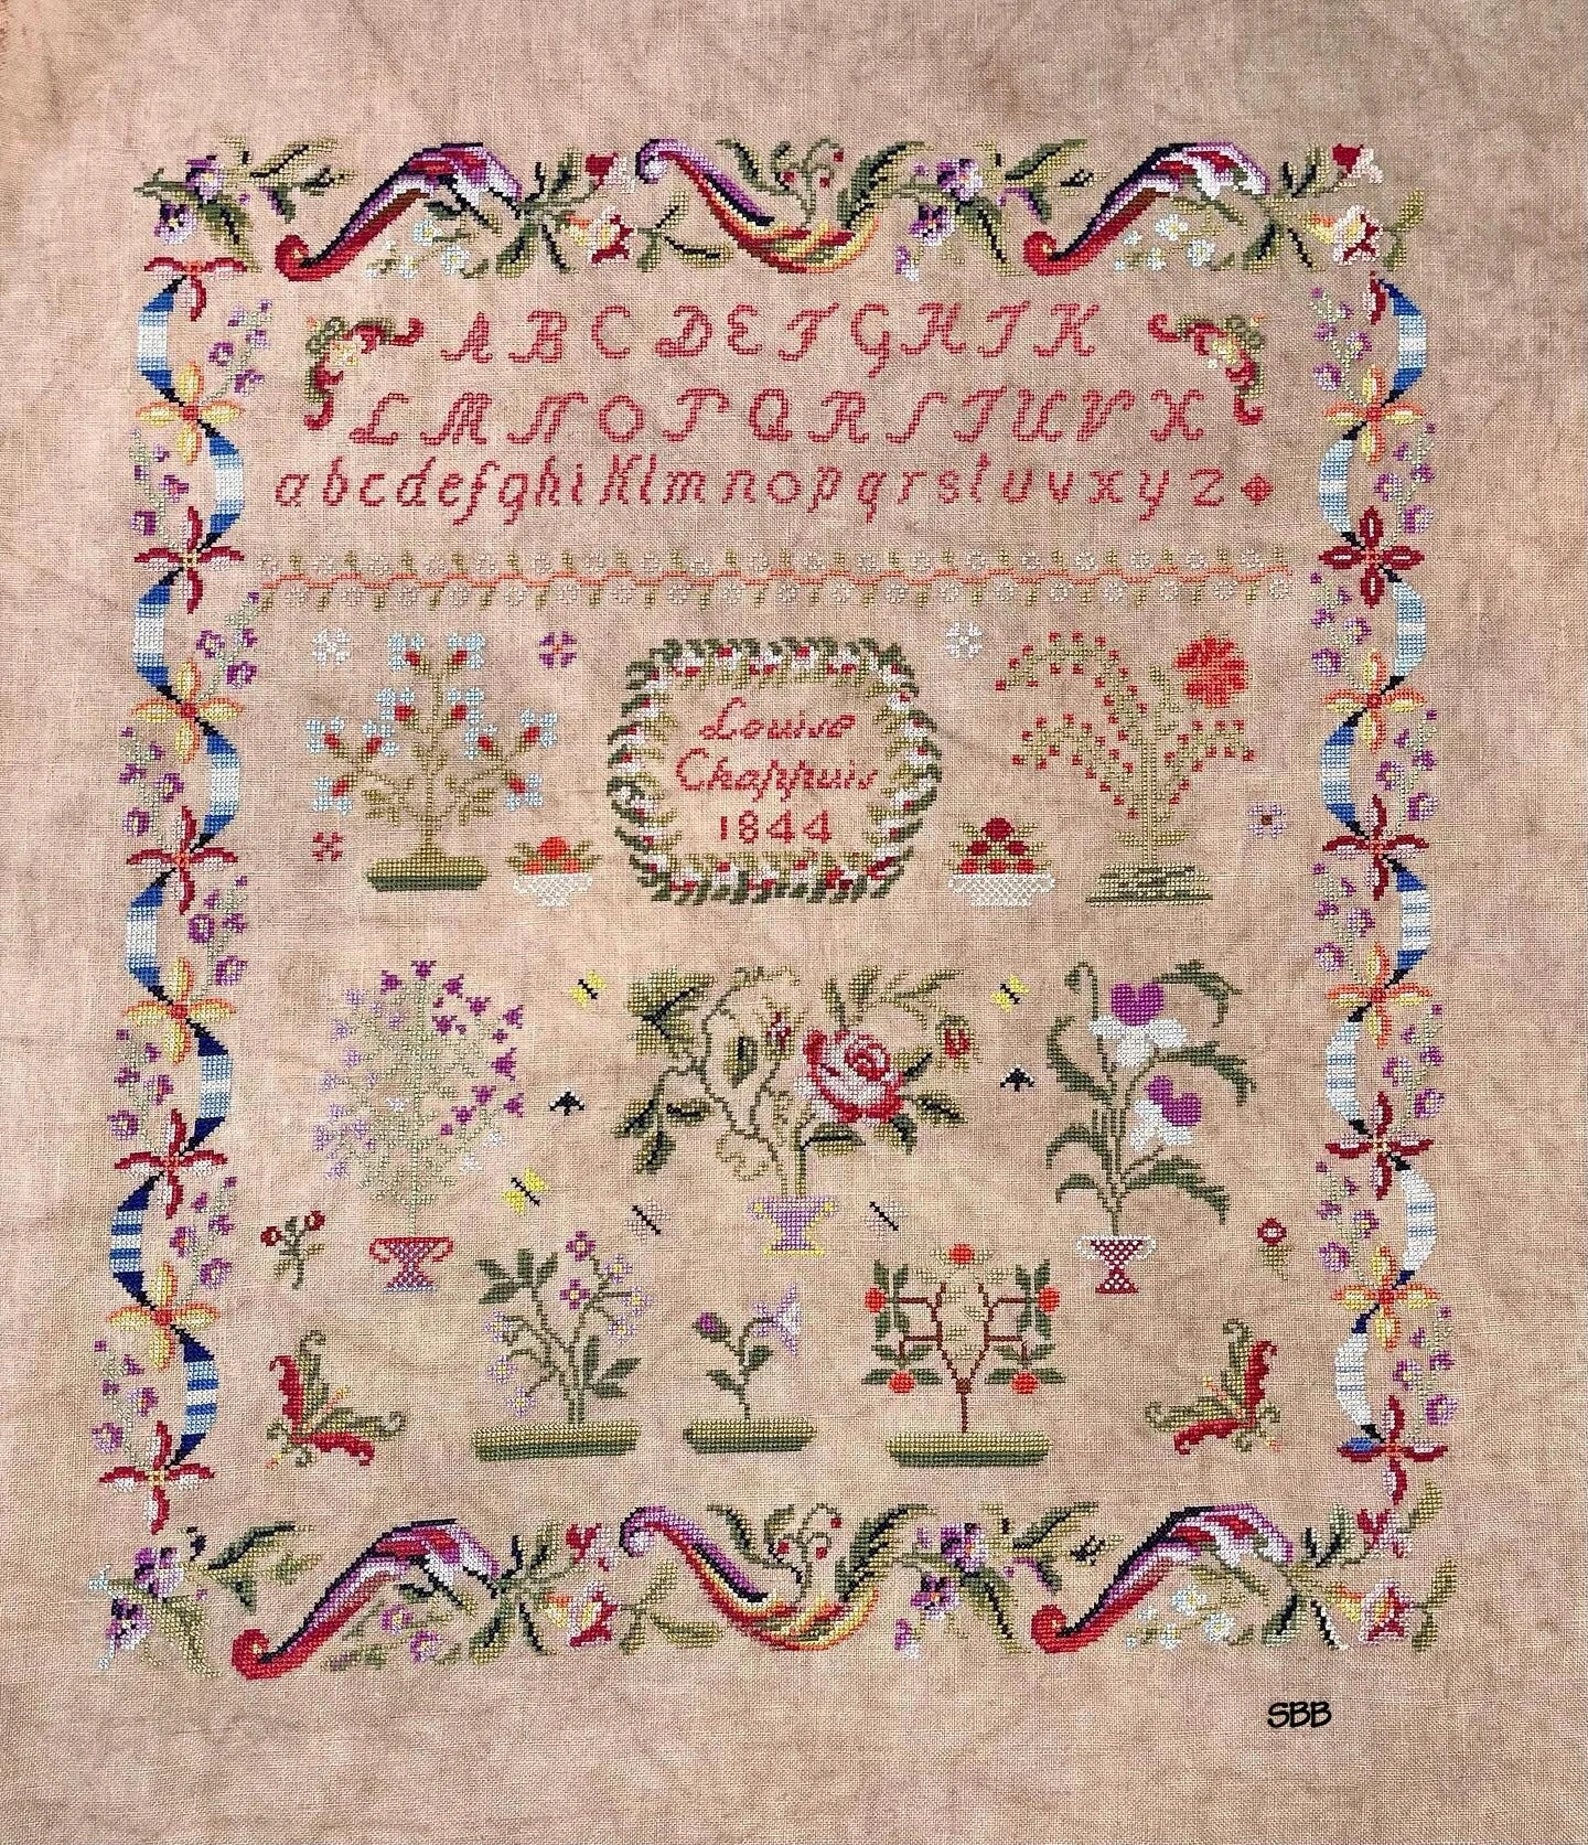 A B C D E F G H I K
L M N O P Q R S T U V X
a b c d e f g h i k l m n o p q r s t u v x y z
Louise
Chappuis
1844
SBB